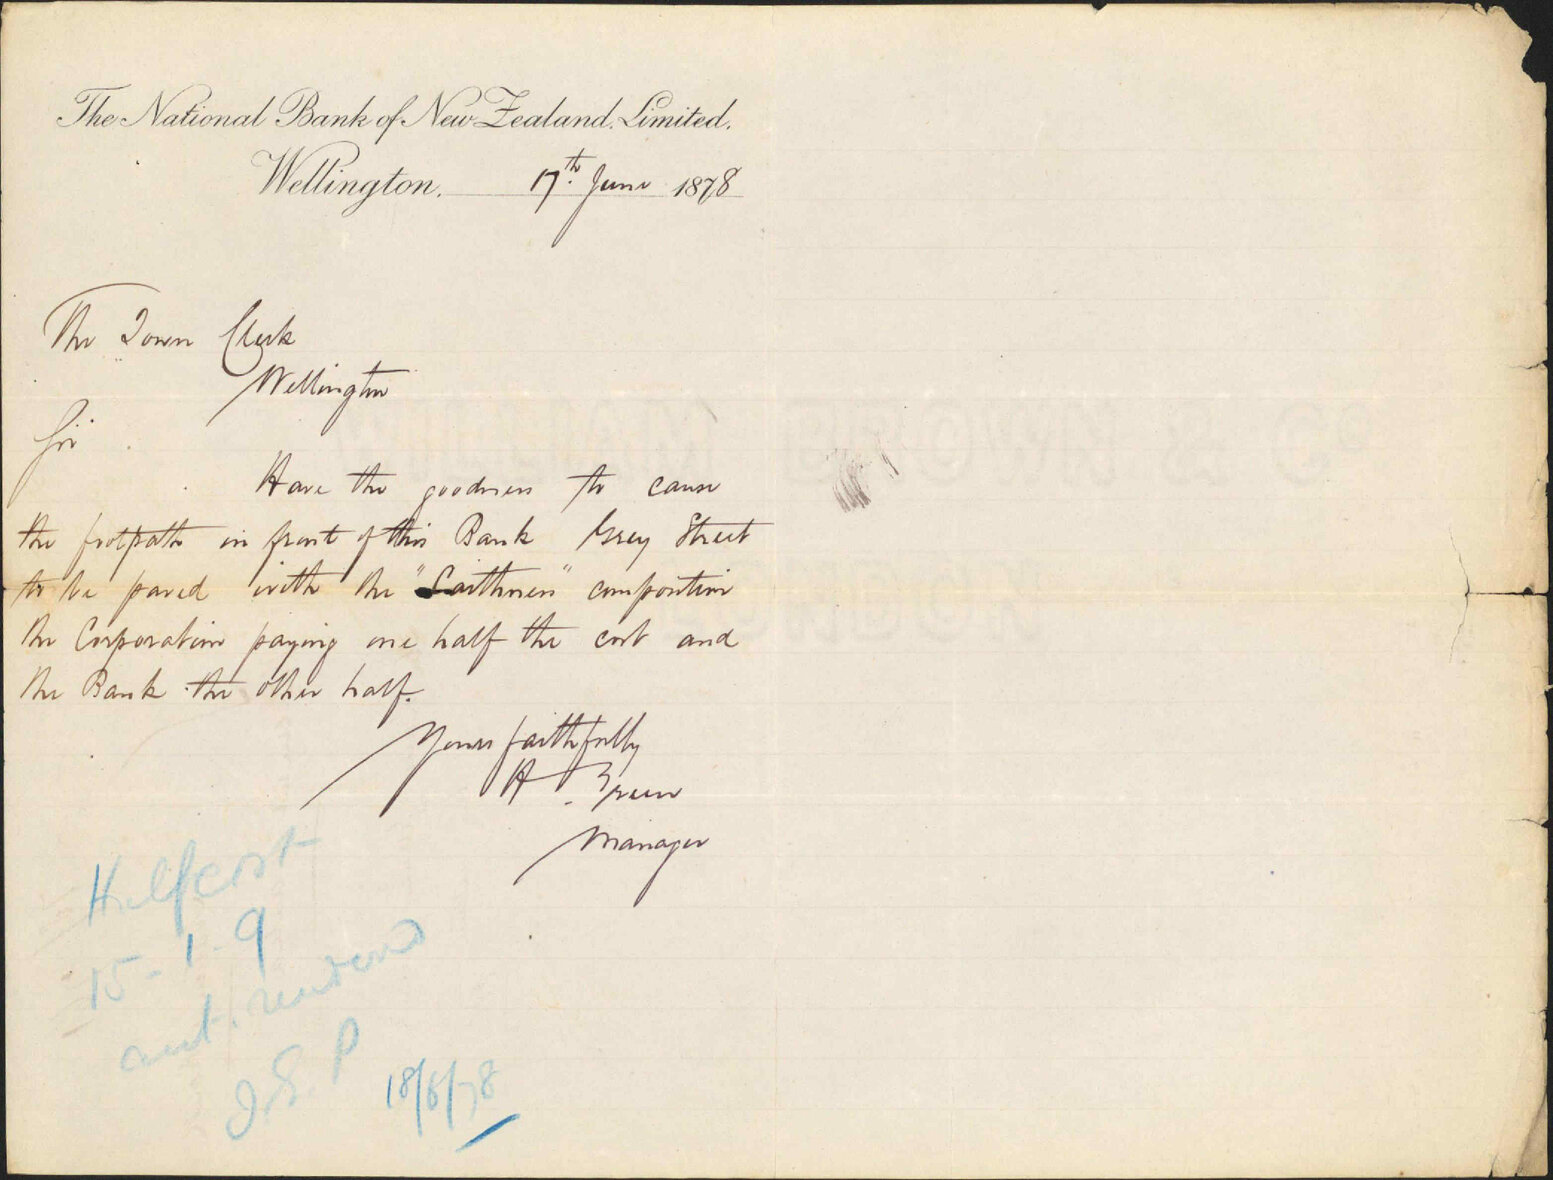 The National Bank of New Zealand, Limited.
Wellington, 17th June 1878
The Town Clerk
Wellington
Sir
Have the goodness to cause
the footpath in front of this Bank Grey Street
to be paved with the "Caithness" composition
the Corporation paying one half the cost and
the Bank the other half.
Yours faithfully
H
Manager
Half cost
15-1-9
acct. rendered
J.S.P
18/6/78
WILLIAM BROWN & Co
LONDON